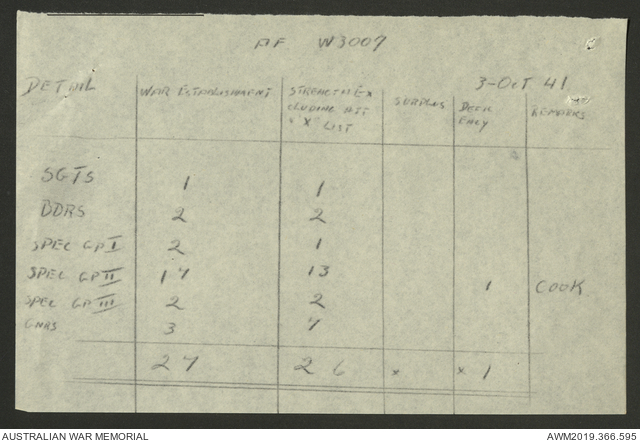 AF W3009
3-Oct 41
DETAIL WAR ESTABLISHMENT STRENGTH EX SURPLUS DEFIC REMARKS
CLUDING ATT ENCY
"X" LIST
SGTS 1 1
BDRS 2 2
SPEC GP I 2 1
SPEC GP II 17 13 1 COOK
SPEC GP III 2 2
GNRS 3 7
27 26 x x 1
AUSTRALIAN WAR MEMORIAL AWM2019.366.595